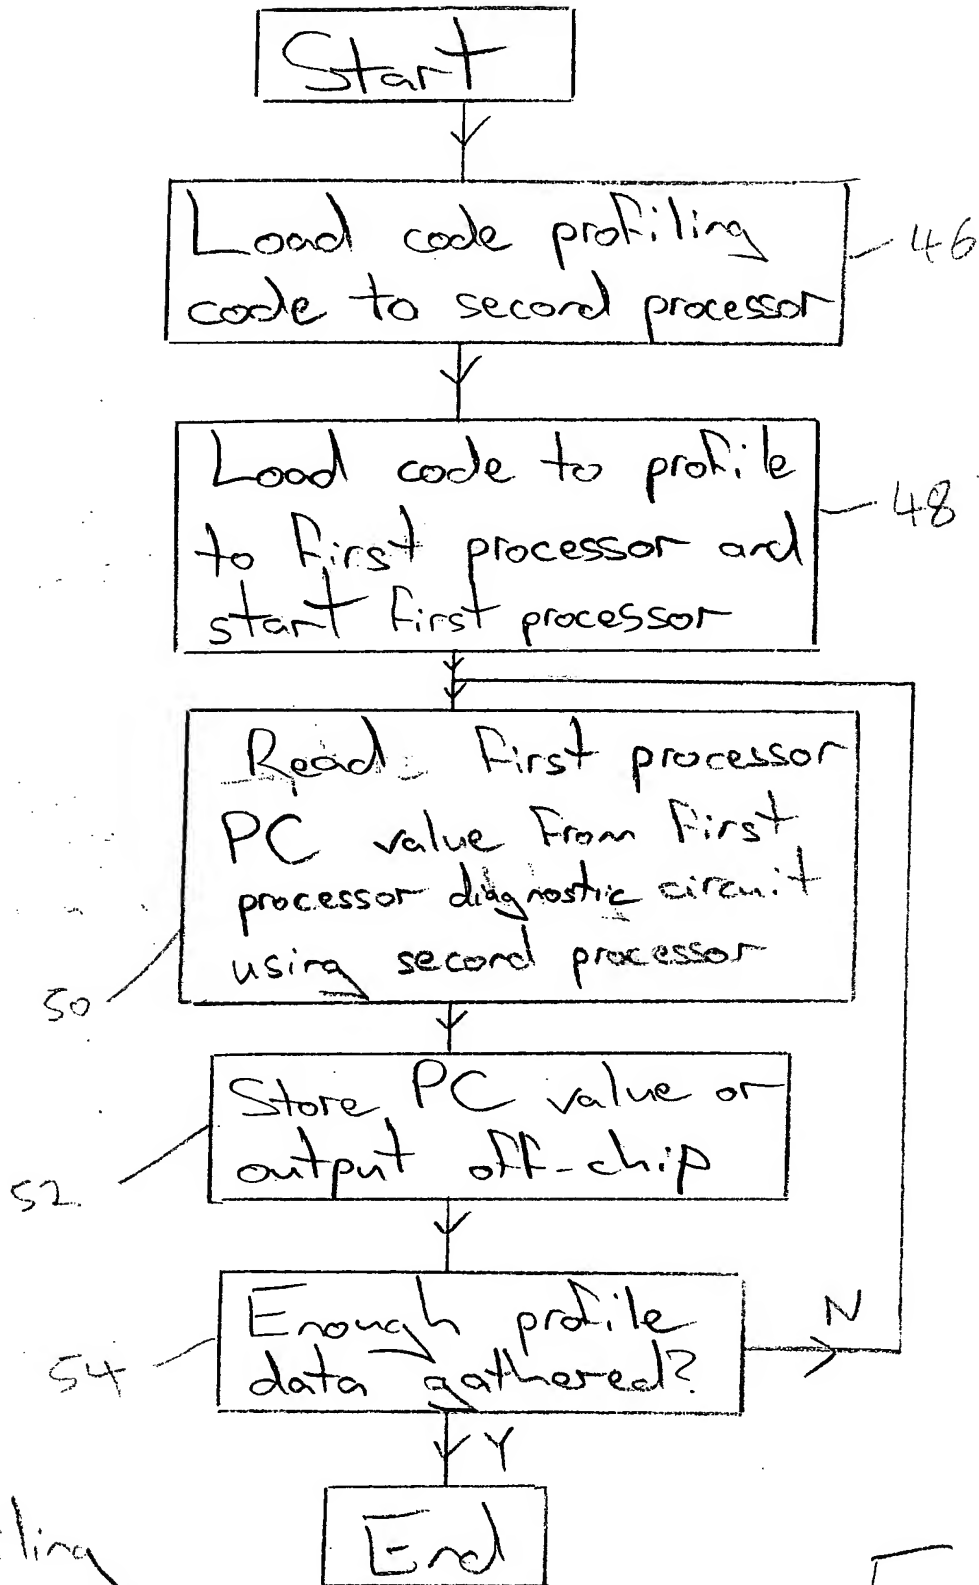 Start
Load code profiling
code to second processor
46
Load code to profile
to first processor and
start first processor
48
Read first processor
PC value from first
processor diagnostic circuit
using second processor
50
Store PC value or
output off-chip
52
Enough profile
data gathered?
54
N
Y
End